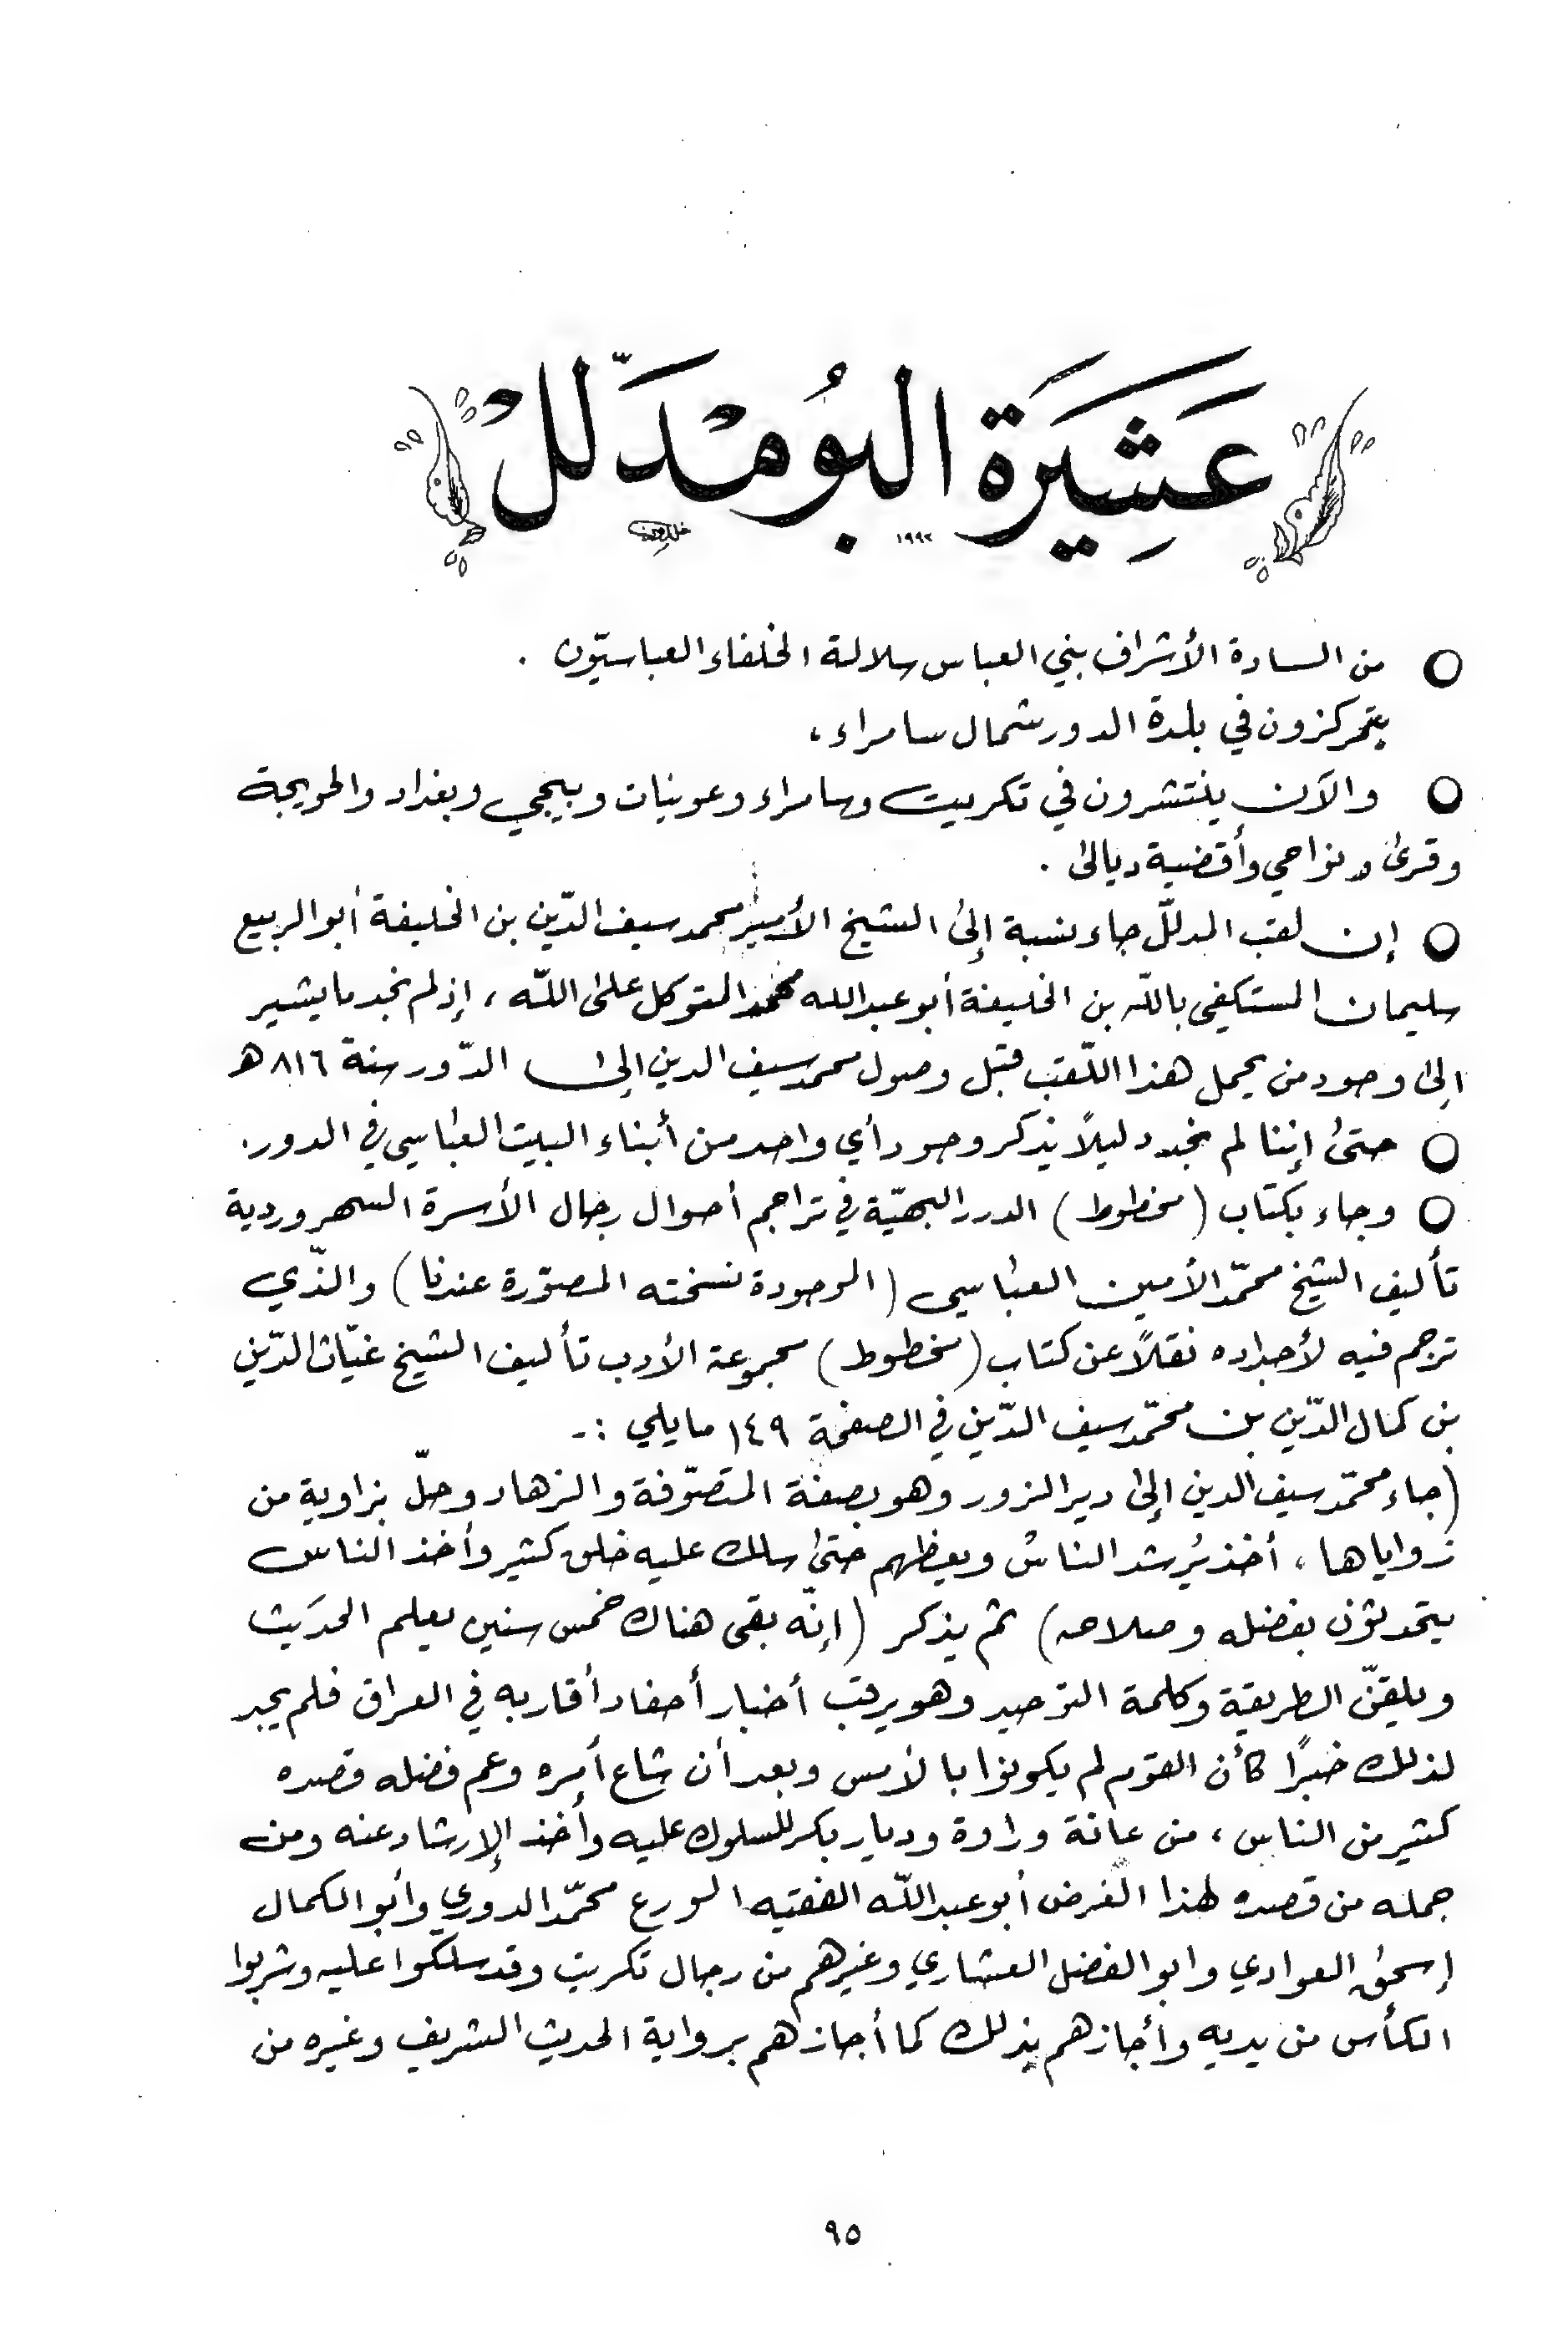 عَشِيَرة البُو مْدَلّلْ
١٩٩٢
من السادة الأشراف بني العباس سلالة الخلفاء العباسيّون .
يتمركزون في بلدة الدور شمال سامراء ،
والآن ينتشرون في تكريت وسامراء وعوينات وبيجي وبغداد والحويجة
وقرى ونواحي وأقضية ديالى .
إن لقب المدلّل جاء نسبة إلى الشيخ الأمير محمد سيف الدّين بن الخليفة أبو الربيع
سليمان المستكفي باللّه بن الخليفة أبو عبدالله محمد المتوكل على اللّه ، إذ لم نجد ما يشير
الى وجود من يحمل هذا اللّقب قبل وصول محمد سيف الدين إلى الدّور سنة ٨١٦ هـ
حتىٰ إننا لم نجد دليلاً يذكر وجود أي واحد من أبناء البيت العباسي في الدور .
وجاء بكتاب ( مخطوط ) الدرر البهيّة في تراجم أحوال رجال الأسرة السهروردية
تأليف الشيخ محمّد الأمين العباسي ( الموجودة نسخته المصوّرة عندنا ) والذّي
ترجم فيه لأجداده نقلاً عن كتاب ( مخطوط ) مجموعة الأدب تأليف الشيخ غيّاث الدّين
بن كمال الدّين بن محمّد سيف الدّين في الصفحة ١٤٩ ما يلي :ـ
( جاء محمّد سيف الدين إلىٰ دير الزور وهو بصفة المتصوّفة والزهاد وحلّ بزاوية من
زواياها ، أخذ يُرشد الناس ويعظهم حتىٰ سلك عليه خلق كثير وأخذ الناس
يتحدثون بفضله وصلاحه ) ثم يذكر ( إنّه بقى هناك خمس سنين يعلم الحديث
ويلقّن الطريقة وكلمة التوحيد وهو يرقب أخبار أحفاد أقاربه في العراق فلم يجد
لذلك خبرًا كأن القوم لم يكونوا بالأمس وبعد أن شاع أمره وعم فضله قصده
كثير من الناس ، من عانة وراوة وديار بكر للسلوك عليه وأخذ الإرشاد عنه ومن
جمله من قصده لهذا الغرض أبو عبداللّه الفقيه الورع محمّد الدوري وأبو الكمال
إسحٰق العوادي وابو الفضل العشاري وغيرهم من رجال تكريت وقد سلكوا عليه وشربوا
الكأس من يديه وأجازهم بذلك كما أجازهم برواية الحديث الشريف وغيره من
٩٥